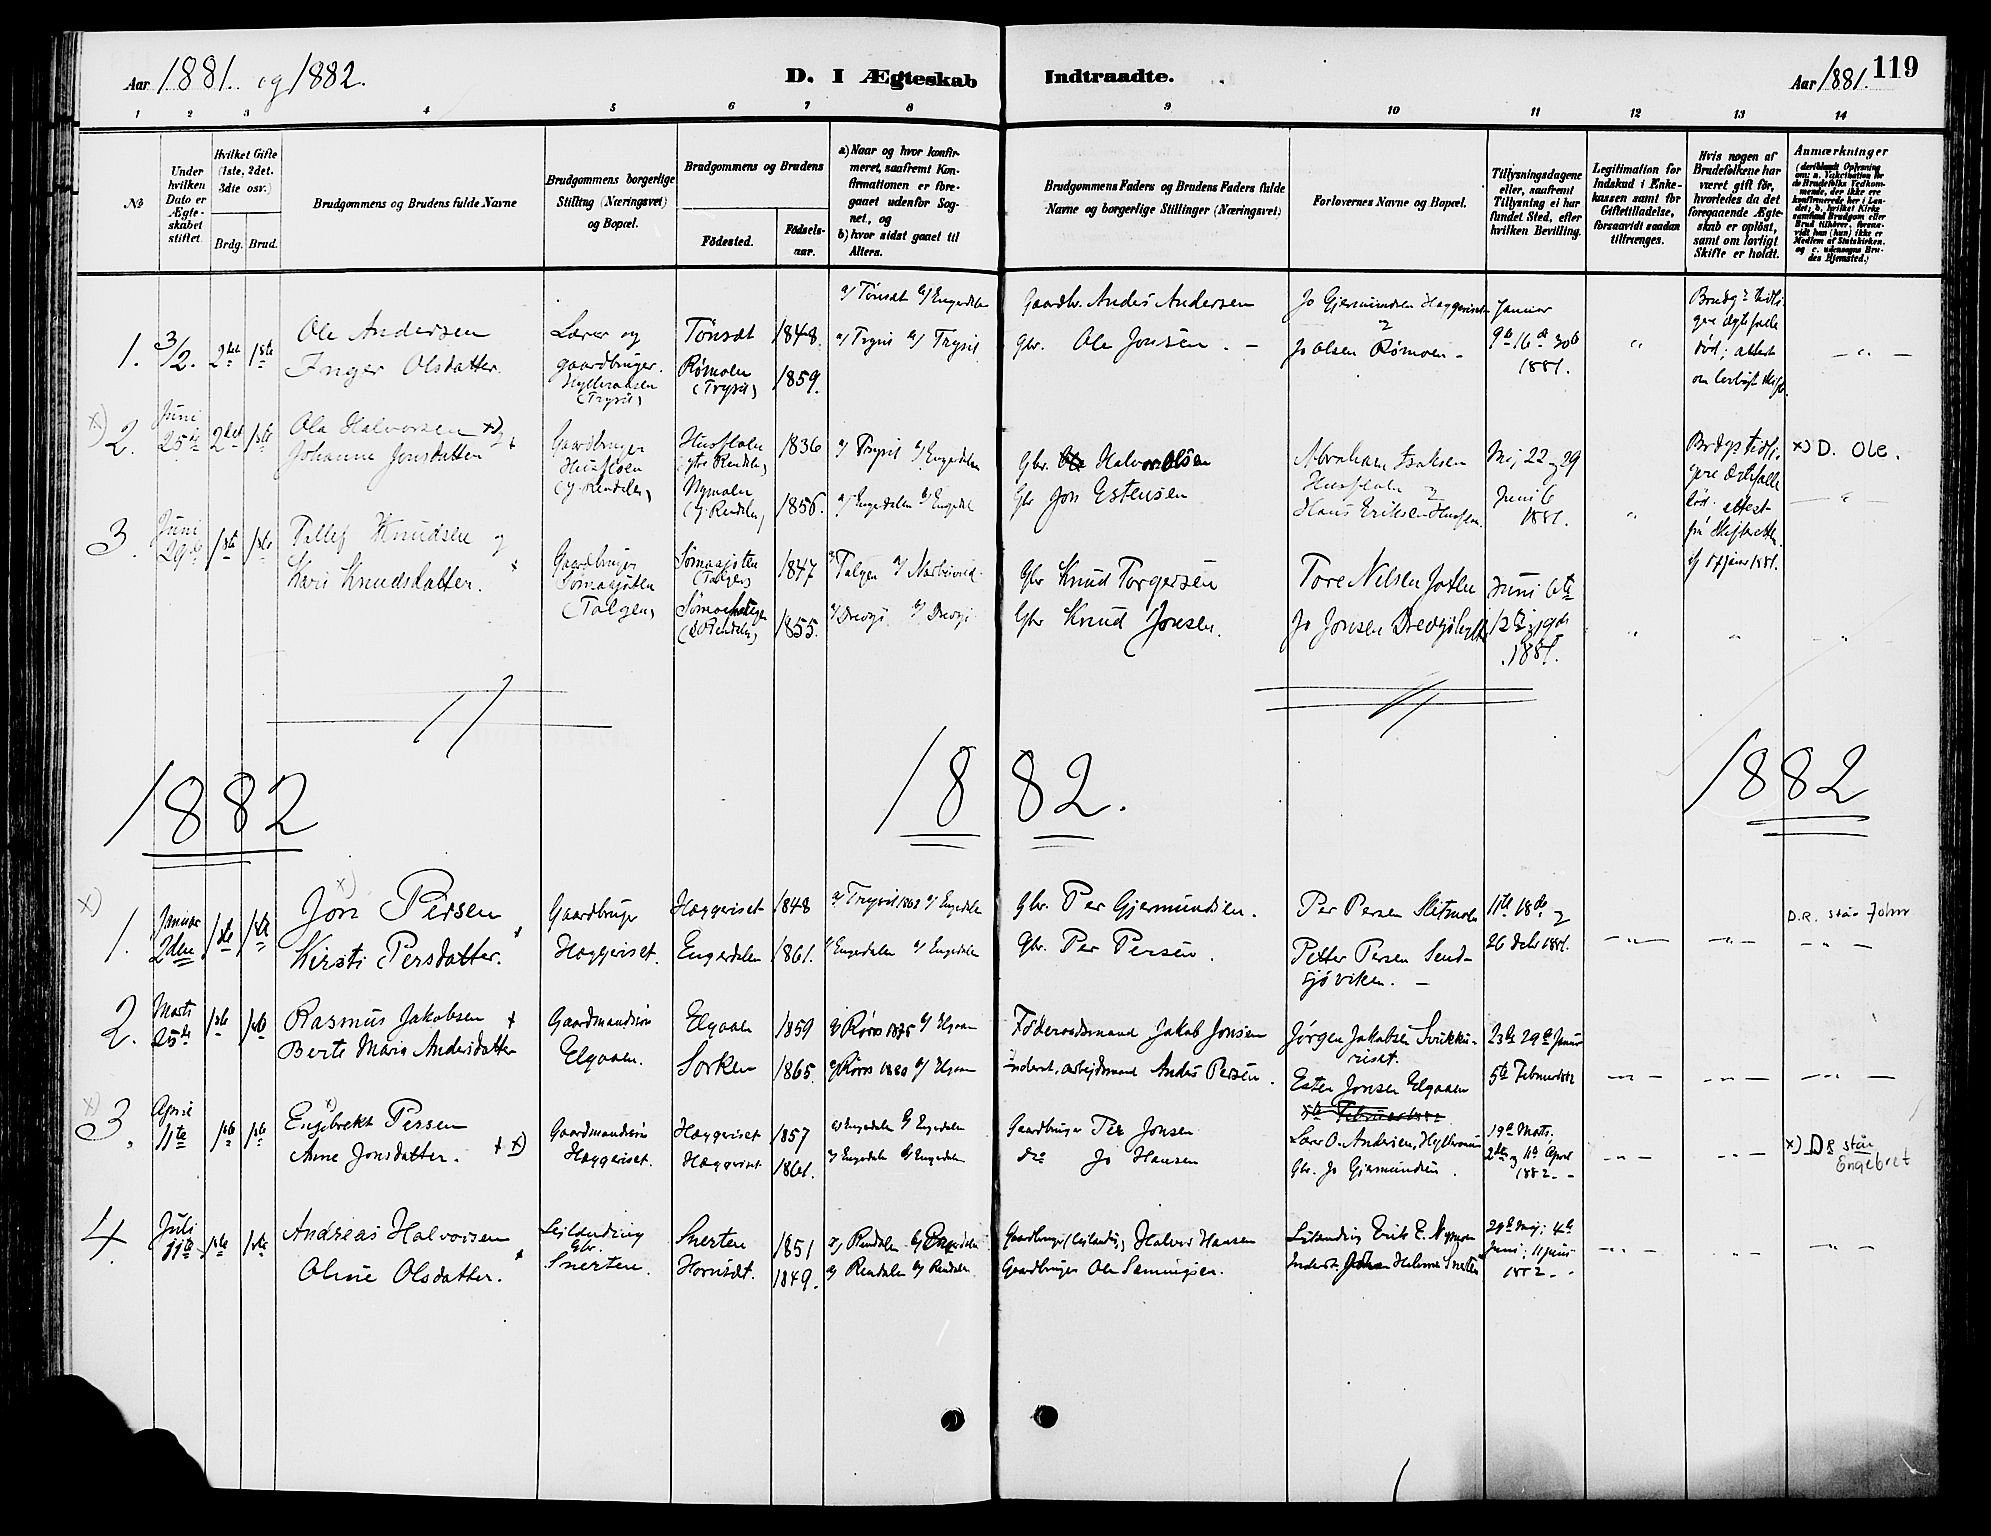 Aar 1881. og 1882.
D. I Ægteskab Indtraadte.
Aar 1881. 119
1 2 3 4 5 6 7 8 9 10 11 12 13 14
No
Under hvilken Dato er Ægteskabet stiftet
Hvilket Gifte (1ste, 2det, 3die osv.)
Brdg. Brud.
Brudgommens og Brudens fulde Navne
Brudgommens borgerlige Stilling (Næringsvei) og Bopæl.
Brudgommens og Brudens
Fødested. Fødselsaar.
a) Naar og hvor konfirmeret, saafremt Konfirmationen er foregaaet udenfor Sognet, og
b) hvor sidst gaaet til Alters.
Brudgommens Faders og Brudens Faders fulde Navne og borgerlige Stillinger (Næringsvei)
Forlovernes Navne og Bopæl.
Tillysningsdagene eller, saafremt Tillysning ei har fundet Sted, efter hvilken Bevilling.
Legitimation for Indskud i Enkekassen samt for Giftetilladelse, forsaavidt saadan tiltrænges.
Hvis nogen af Brudefolkene har været gift før, hvorledes da det foregaaende Ægteskab er opløst, samt om lovligt Skifte er holdt.
Anmærkninger
1. 3/2. 2det 1ste
Ole Andersen
Inger Olsdatter.
Lærer og gaardbruger. (Trysil)
Tønset 1848.
Rømoen (Trysil) 1859.
a/ Tønset b/ Engerdalen
a/ Trysil b/ Trysil
Gaardbr. Andes Andersen
Gbr. Ole Jonsen. -
Jo Gjermundsen Haggeriset
Jo Olsen Rømoen -
Januar 1881.
x) 2. Juni 25de 2det 1ste
Ola Halvorsen x)
Johanne Jonsdatter
Gaardbruger Husfloen (y. Rendalen)
Husfloen Ytre Rendalen 1836
Nymoen (Y. Rendalen) 1856.
a/ Trysil b/ Engerdalen
a/ Engerdalen b/ Engerdal
Gbr. Halvor Olsen
Gbr Jon Estensen
Abraham Isaksen Husfloen
Hans Eriksen Husfloen.
Maj 22 og 29 Juni 6 1881.
x) D. Ole.
3. Juni 29de 1ste 1ste
Tellef Knudsen og
Kari Knudsdatter.
Gaardbruger Sømaasjøten (Tolgen)
Sømaasjøten (Tolgen) 1847
(Ø Rendalen) 1855.
Tolgen
a/ Drevsjø b/ Drevsjø
Gbr Knud Torgersen
Gbr Knud Jonsen.
Tore Nilsen
Jo Jonsen Drevsjøhytte
Juni 1881.
1882
1882.
1882
x) 1. Januar 2den 1ste 1ste
x)
Jon Persen
Kirsti Persdatter.
Gaardbruger Haggeriset.
Haggeriset 1848
Engerdalen 1861.
a/ Trysil 1862 b/ Engerdalen
a/ Engerdalen b/ Engerdalen
Gbr. Per Gjermundsen.
Gbr. Per Persen.
Per Persen Sletmoen
Petter Persen Sendsjøviken. -
11te 18de og 26 Debr 1881.
D.R. står John
2. Marts 25de 1ste 1ste
Rasmus Jakobsen
Berte Maria Andersdatter
Gaardmandssøn Elgaaen.
Elgaaen 1859
Sorken 1865.
a/ Røros 1875 b/ Elgaaen
a/ Røros 1880 b/ Elgaaen
Føderaadsmand Jakob Jonsen
Inderst, arbejdsmand Andes Persen.
Jørgen Jakobsen Svukkuriset.
Esten Jonsen Elgaaen
23de 29de Januar
5te Februar 1882
x) 3. April 11te 1ste 1ste
x)
Engebrekt Persen
Anne Jonsdatter. + x)
Gaardmandssøn Haggeriset.
Haggeriset 1857
Haggeriset 1861.
a/ Engerdalen b/ Engerdalen
a/ Engerdalen b/ Engerdalen
Gaardbruger Per Jonsen
do Jo Hansen
Lærer O. Andersen, Hylleraasen
Gbr. Jo Gjermundsen.
19de Marts. 2den og 11te April 1882. -
x) D R står Engebret
4. Juli 11te 1ste 1ste
Andreas Halvorsen
Oline Olsdatter.
Lejlending Gbr. Snerten.
Snerten 1851
Hornset. 1849.
a/ Rendalen b/ Engerdalen
a/ Rendalen b/ Rendalen
Gaardbruger (Lejlending) Halvor Hansen
Gaardbruger Ole Semmingsen.
Leilending Erik E. Nymoen
Inderst. Johan Helmer Snerten
29de Maj; 4de Juni; 11 Juni 1882. -